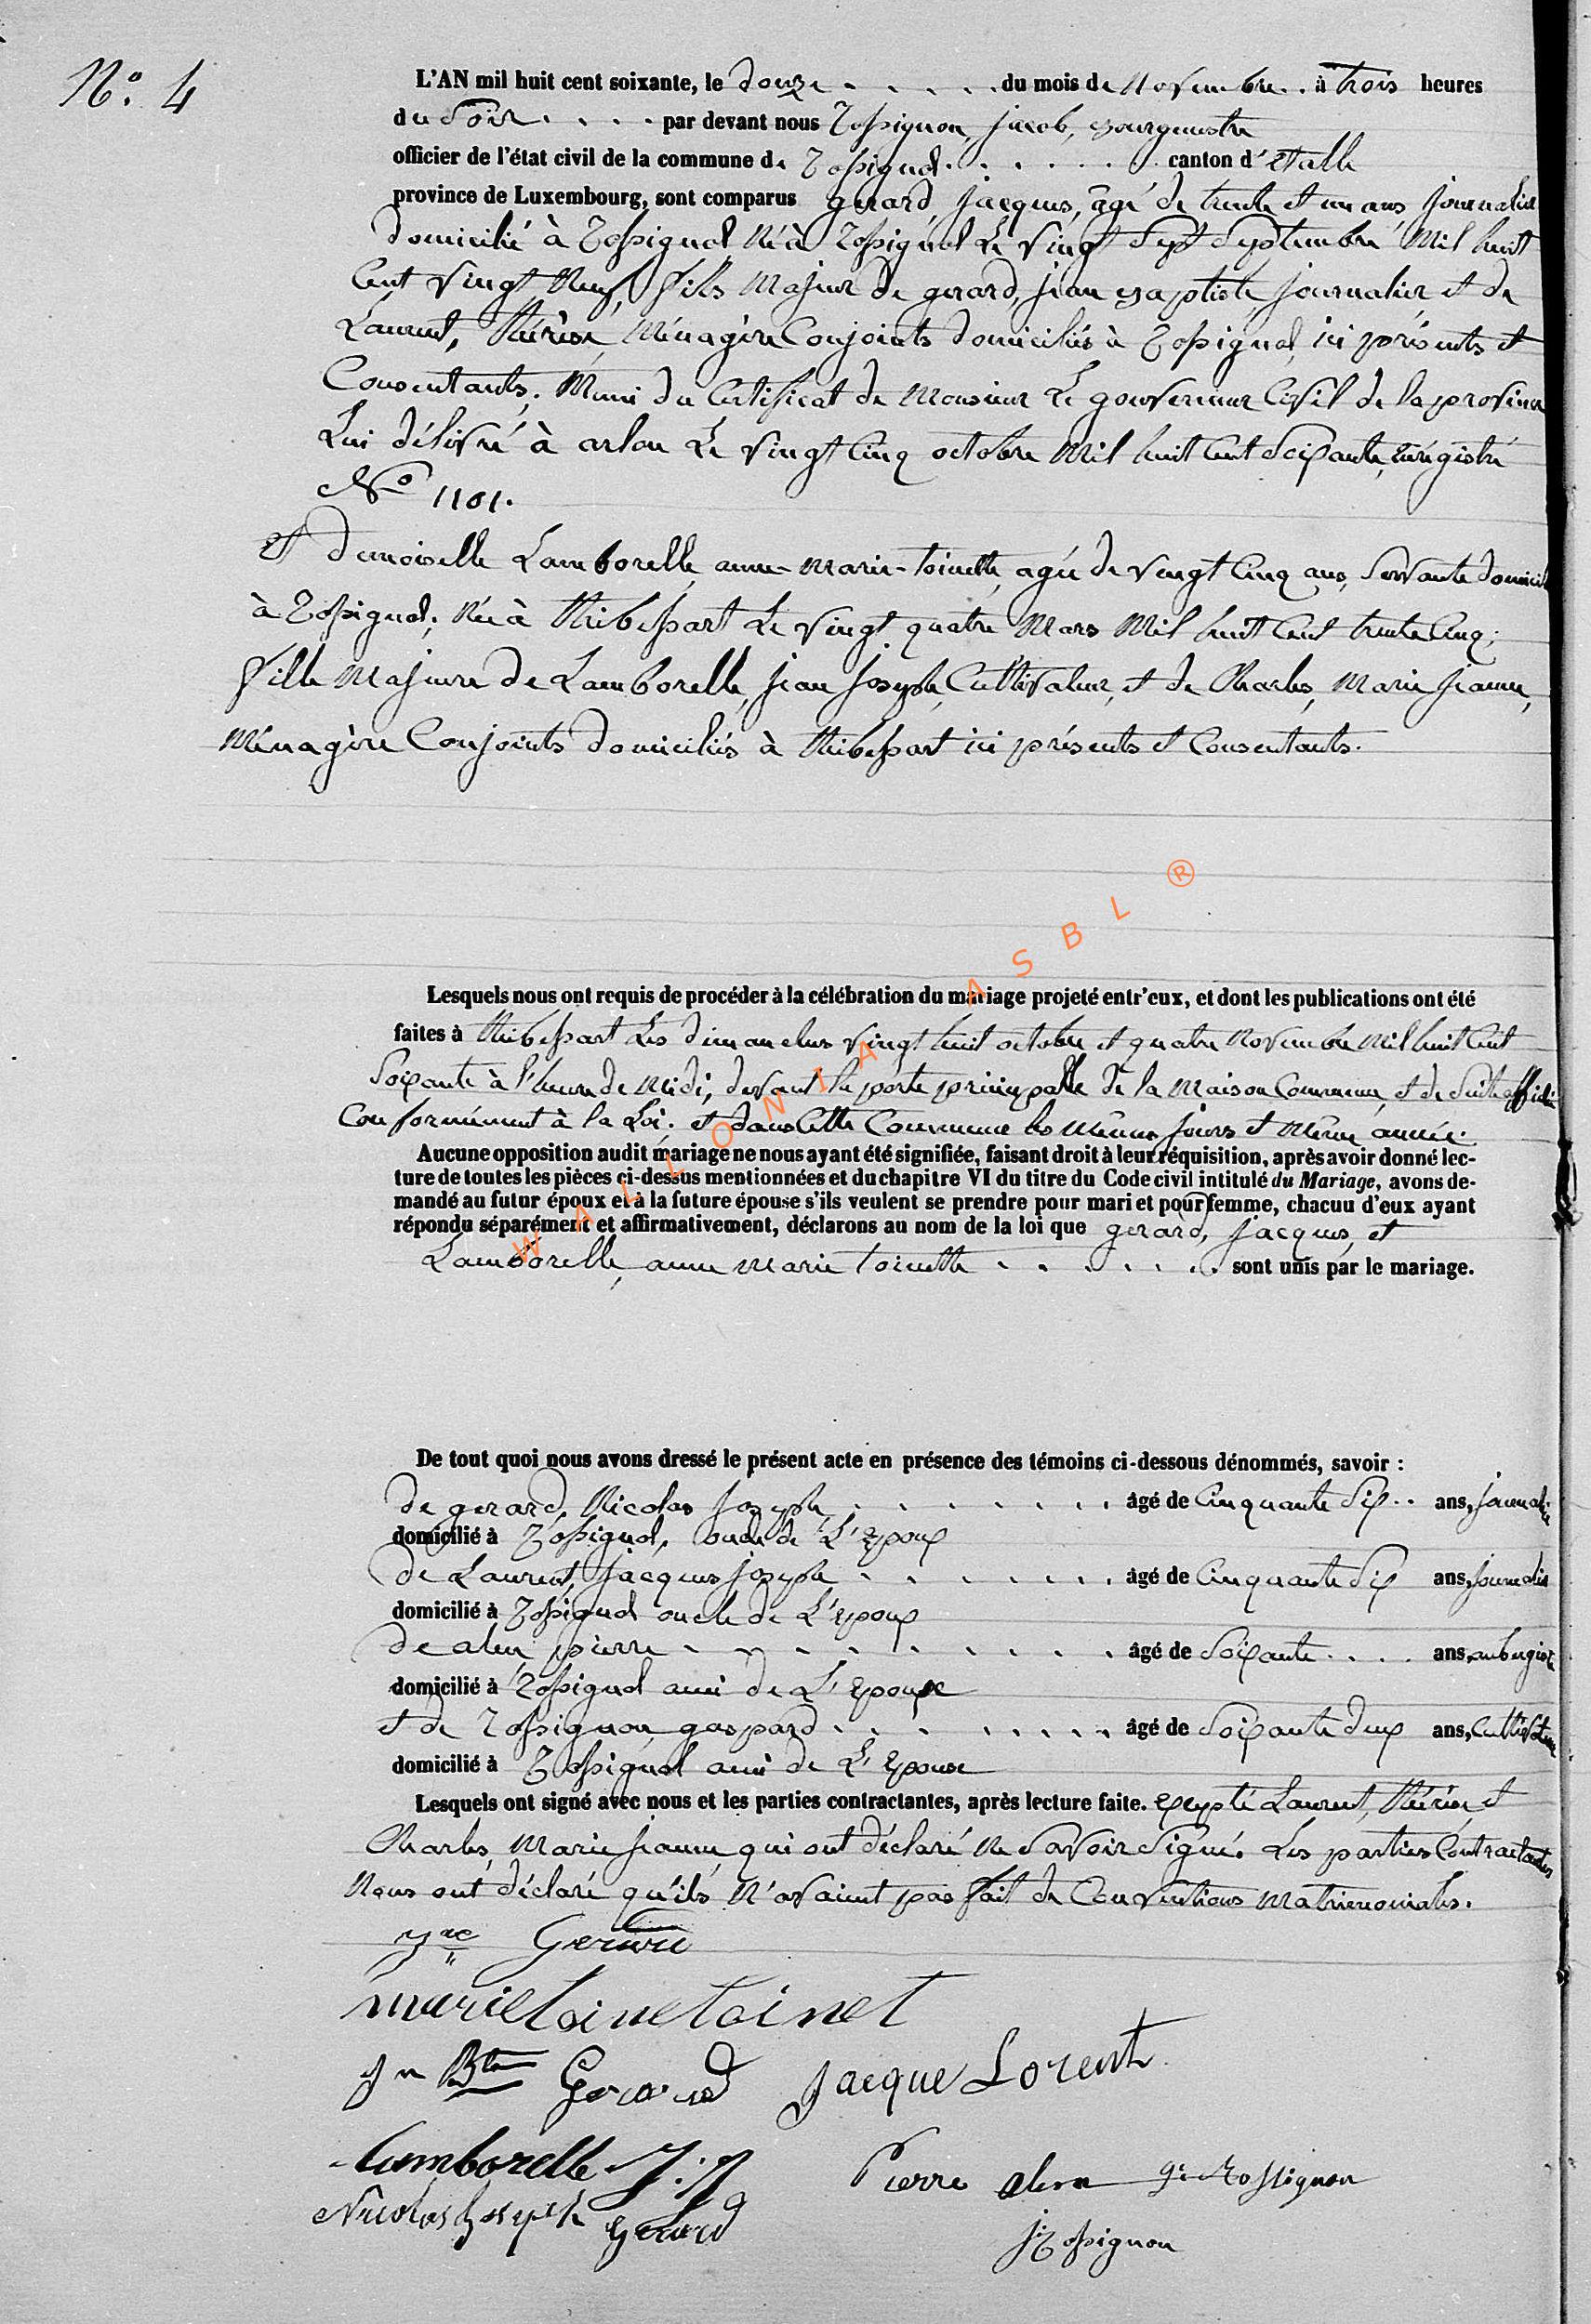 N.° 4
L'AN mil huit cent soixante, le douze . . . . . du mois de Novembre . . à trois heures
du Soir . . . . par devant nous Rossignon, Jacob, Bourgmestre
officier de l'état civil de la commune de Rossignol . . . . . . canton d'Etalle
province de Luxembourg, sont comparus gerard, Jacques, agé de trente et un ans, Journalier
domicilié à Rossignol Né à Rossignol Le vingt Sept Septembre Mil huit
Cent vingt Neuf, fils Majeur de gerard, Jean Baptiste, Journalier et de
Laurent, Thérèse, Ménagère Conjoints domiciliés à Rossignol, ici présents et
Consentants. Muni du Certificat de Monsieur Le gouverneur Civil de la province
Lui délivré à arlon Le vingt Cinq octobre Mil huit Cent Soixante, enrégistré
N° 1101.
Et demoiselle Lamborelle, anne-Marie-toinette, agée de vingt Cinq ans, Servante domicil
à Rossignol, Née à Thibessart Le vingt quatre Mars Mil huit Cent trente Cinq;
fille Majeure de Lamborelle, Jean Joseph, Cultivateur, et de Charles, Marie Jeanne,
Ménagère Conjoints domiciliés à Thibessart ici présents et Consentants.
Lesquels nous ont requis de procéder à la célébration du mariage projeté entr'eux, et dont les publications ont été
faites à Thibessart Les dimanches vingt huit octobre et quatre Novembre Mil huit Cent
Soixante à l'heure de Midi, devant la porte principalle de la Maison Commune, et de Suite affichée
Conformément à la Loi. et dans Cette Commune les Mêmes Jours et Même année.
Aucune opposition audit mariage ne nous ayant été signifiée, faisant droit à leur réquisition, après avoir donné lec-
ture de toutes les pièces ci-dessus mentionnées et du chapitre VI du titre du Code civil intitulé du Mariage, avons de-
mandé au futur époux et à la future épouse s'ils veulent se prendre pour mari et pour femme, chacuu d'eux ayant
répondu séparément et affirmativement, déclarons au nom de la loi que gerard, Jacques, et
Lamborelle, anne Marie toinette . . . . . . . sont unis par le mariage.
De tout quoi nous avons dressé le présent acte en présence des témoins ci-dessous dénommés, savoir :
de gerard, Nicolas Joseph . . . . . . . âgé de Cinquante Six . . ans, Journalier
domicilié à Rossignol, oncle de L'Epoux
de Laurent, Jacques Joseph . . . . . . âgé de Cinquante Six ans, Journalier
domicilié à Rossignol oncle de L'Epoux
de alen pierre . . . . . . . . . âgé de Soixante . . . . ans, aubergiste
domicilié à Rossignol ami de L'Epouse
et de Rossignon gaspard . . . . . . . . âgé de Soixante deux ans, Cultivateur
domicilié à Rossignol ami de L'Epouse
Lesquels ont signé avec nous et les parties contractantes, après lecture faite. Exepté Laurent, Thérèse et
Charles, Marie Jeanne, qui ont déclaré Ne Savoir Signé. Les parties Contractantes
Nous ont déclaré qu'ils N'avaient pas fait de Conventions Matrimoniales.
Gerard
marie toinetoinet
Jn Bte Gerard Jacque Lorent
Lamborelle J. J
Pierre alen gd Rossignon
Nicolas Joseph Gerard
J Rossignon
WALLONIA ASBL ®